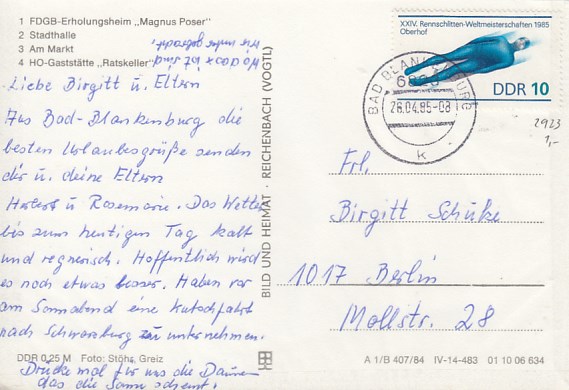 1 FDGB-Erholungsheim „Magnus Poser"
2 Stadthalle
3 Am Markt
4 HO-Gaststätte „Ratskeller"
Wo das x ist sind
wir unter gebracht.
Liebe Birgitt u. Eltern
Aus Bad-Blankenburg die
besten Urlaubsgrüße senden
dir u. deine Eltern
Herbert u Rosemarie. Das Wetter
bis zum heutigen Tag kalt
und regnerisch. Hoffentlich wird
es noch etwas besser. Haben vor
am Sonnabend eine Kutschfahrt
nach Schwarzburg zu unternehmen.
Drücke mal für uns die Daumen
das die Sonn scheint.
DDR 0,25 M Foto: Stöhr, Greiz
BILD UND HEIMAT · REICHENBACH (VOGTL)
XXIV. Rennschlitten-Weltmeisterschaften 1985
Oberhof
DDR 10
BAD BLANKENBURG
26.04.85-08
k
2923
1,-
Frl.
Birgitt Schulze
1017 Berlin
Mollstr. 28
A 1/B 407/84 IV-14-483 01 10 06 634